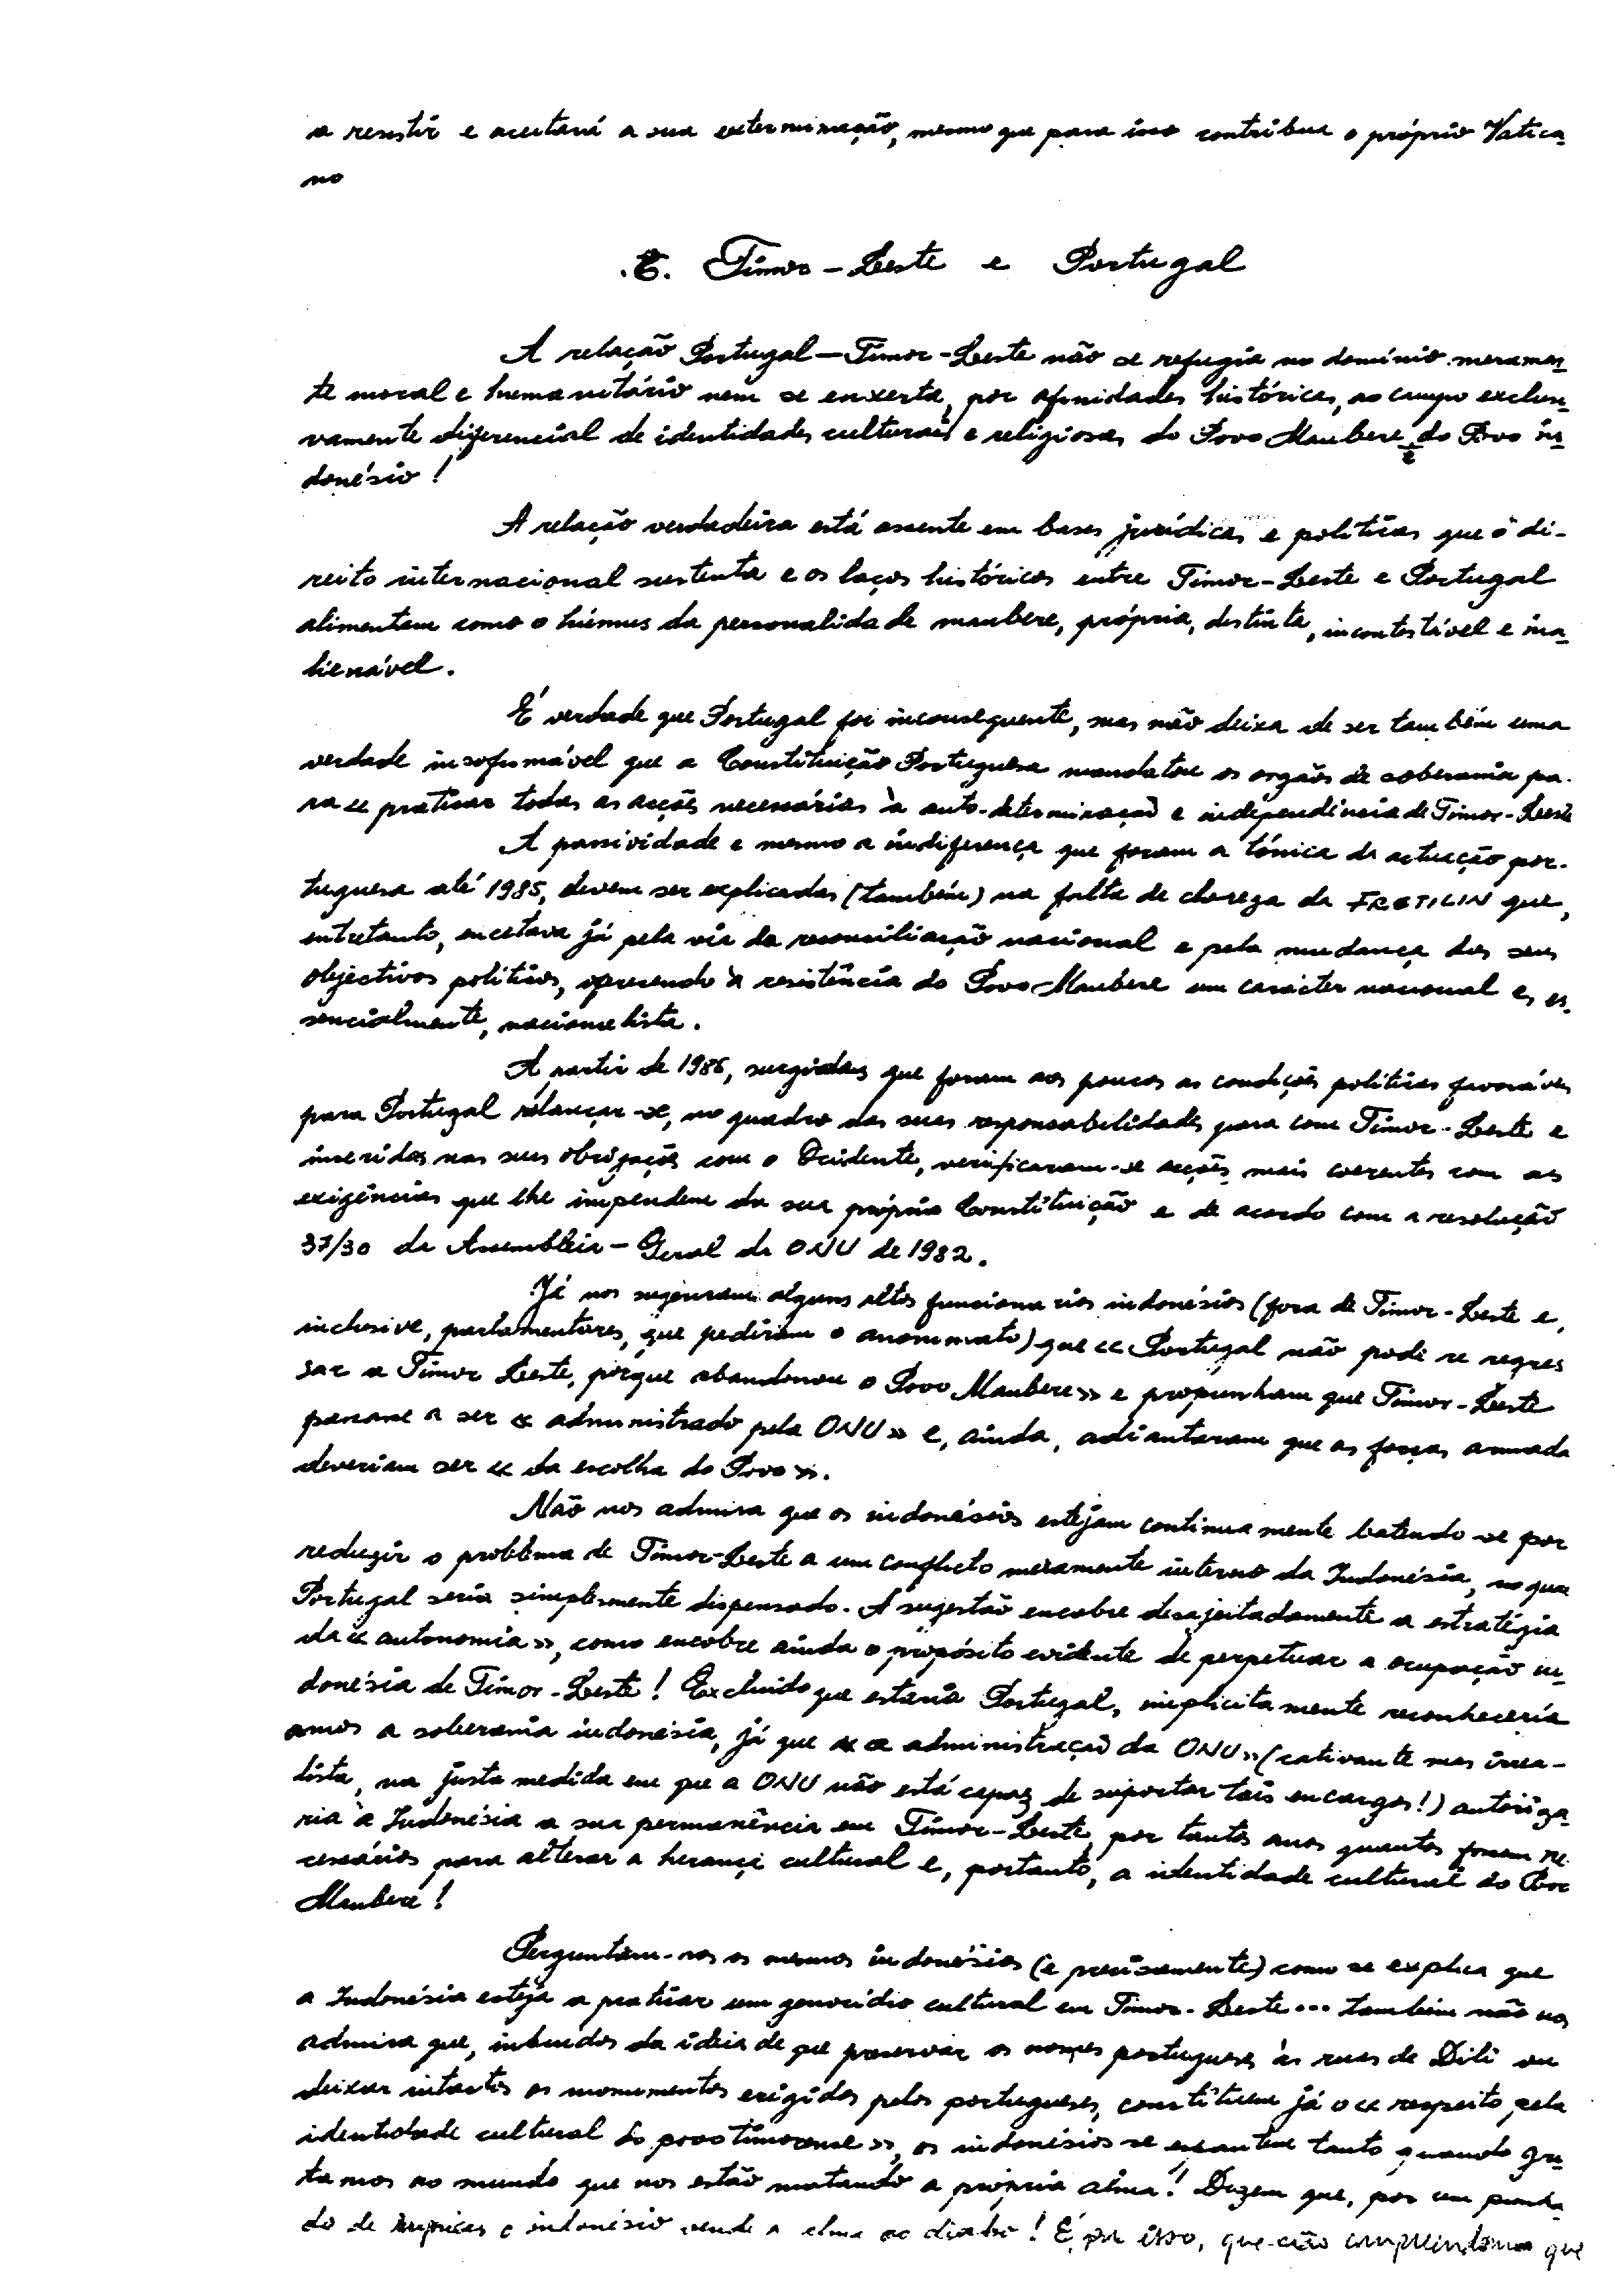 a resistir e aceitará a sua exterminação, mesmo que para isso contribua o próprio Vatica
no
C. Timor-Leste e Portugal
A relação Portugal—Timor-Leste não se refugia no domínio meramen
te moral e humanitário nem se enxerta, por afinidades históricas, ao campo exclusi
vamente diferencial de identidades culturais e religiosas do Povo Maubere e do Povo in
donésio!
A relação verdadeira está assente em bases jurídicas e políticas que o di-
reito internacional sustenta e os laços históricos entre Timor-Leste e Portugal
alimentam como o húmus da personalidade maubere, própria, distinta, incontestável e ina
lienável.
É verdade que Portugal foi inconsequente, mas não deixa de ser também uma
verdade insofismável que a Constituição Portuguesa mandatou os orgãos de soberania pa-
ra se praticar todas as acções necessárias à auto-determinação e independência de Timor-Leste
A passividade e mesmo a indiferença que foram a tónica da actuação por-
tuguesa até 1985, devem ser explicadas (também) na falta de clareza da FRETILIN que,
entretanto, encetava já pela via da reconciliação nacional e pela mudança dos seus
objectivos políticos, oferecendo à resistência do Povo Maubere um carácter nacional e, es-
sencialmente, nacionalista.
A partir de 1986, surgidas que foram aos poucos as condições políticas favoráveis
para Portugal relançar-se, no quadro das suas responsabilidades para com Timor-Leste e
inseridas nas suas obrigações com o Ocidente, verificaram-se acções mais coerentes com as
exigências que lhe impendem da sua própria Constituição e de acordo com a resolução
37/30 da Assembleia-Geral da ONU de 1982.
Já nos sugeriram alguns altos funcionários indonésios (fora de Timor-Leste e,
inclusive, parlamentares, que pediram o anonimato) que « Portugal não pode re regres
sar a Timor Leste, porque abandonou o Povo Maubere» e propunham que Timor-Leste
passasse a ser « administrado pela ONU » e, ainda, adiantaram que as forças armada
deveriam ser « da escolha do Povo ».
Não nos admira que os indonésios estejam continuamente batendo-se por
reduzir o problema de Timor-Leste a um conflicto meramente interno da Indonésia, no qua
Portugal seria simplesmente dispensado. A sugestão encobre desajeitadamente a estratégia
da « autonomia », como encobre ainda o propósito evidente de perpetuar a ocupação in
donésia de Timor-Leste! Excluido que estaria Portugal, implicitamente reconhecería
amos a soberania indonésia, já que « a administração da ONU » (cativante mas irrea-
lista, na justa medida em que a ONU não está capaz de suportar tais encargos!) autoriza
ria à Indonésia a sua permanência em Timor-Leste, por tantos anos quantos fossem ne
cessários para alterar a herança cultural e, portanto, a identidade cultural do Povo
Maubere!
Perguntam-nos os mesmos indonésios (e precisamente) como se explica que
a Indonésia esteja a praticar um genocídio cultural em Timor-Leste... também não nos
admira que, imbuidos da ideia de que preservar os nomes portugueses às ruas de Dili ou
deixar intactos os monumentos erigidos pelos portugueses, constituem já o « respeito pela
identidade cultural do povo timorense », os indonésios se espantem tanto quando gri
tamos ao mundo que nos estão matando a própria alma! Dizem que, por um punha
do de rupias o indonésio vende a alma ao diabo! É, por isso, que não compreendem que